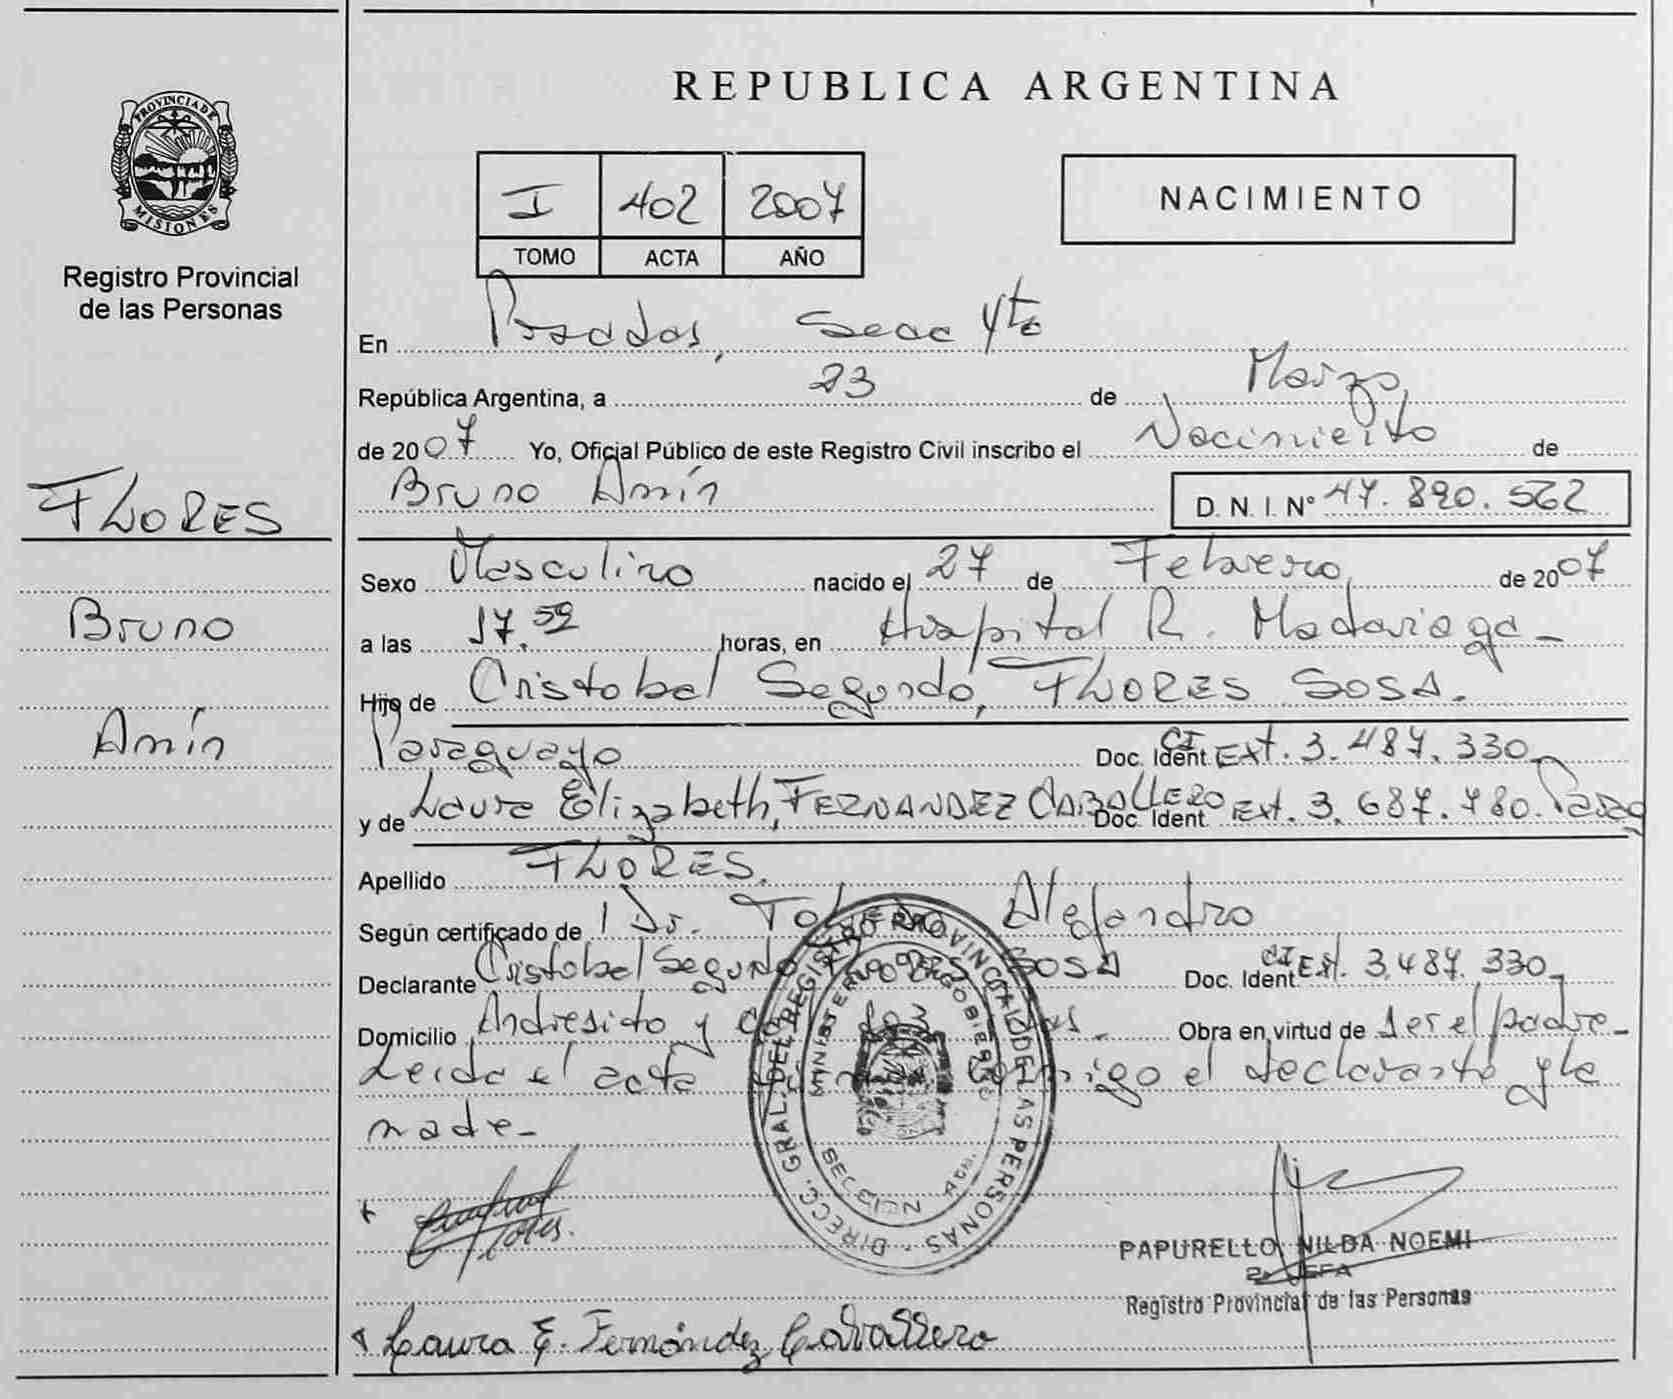 PROVINCIA DE
MISIONES
Registro Provincial
de las Personas
FLORES
Bruno
Amín
REPUBLICA ARGENTINA
I 402 2007
TOMO ACTA AÑO
NACIMIENTO
En Posadas, Secc 4ta
República Argentina, a 23 de Marzo
de 2007 Yo, Oficial Público de este Registro Civil inscribo el Nacimiento de
Bruno Amín D. N. I. N° 47.890.562
Sexo Masculino nacido el 27 de Febrero de 2007
a las 17.52 horas, en Hospital R. Madariaga -
Hijo de Cristobal Segundo, FLORES SOSA.
Paraguayo Doc. Ident. CI Ext. 3.487.330
y de Laura Elizabeth, FERNANDEZ CABALLERO Doc. Ident. Ext. 3.687.780. Parag
Apellido FLORES.
Según certificado de 1 Dr. Toledo Alejandro
Declarante Cristobal Segundo FLORES SOSA Doc. Ident. CI Ext. 3.487.330
Domicilio Andresito y Obra en virtud de ser el padre -
Leída el acta conmigo el declarante y la
madre -
DIRECC. GRAL. DEL REGISTRO PROVINCIAL DE LAS PERSONAS
MINISTERIO DE GOBIERNO
SECCION 4ta.
Flores.
PAPURELLO NILDA NOEMI
2a JEFA
Registro Provincial de las Personas
Laura E. Fernández Caballero